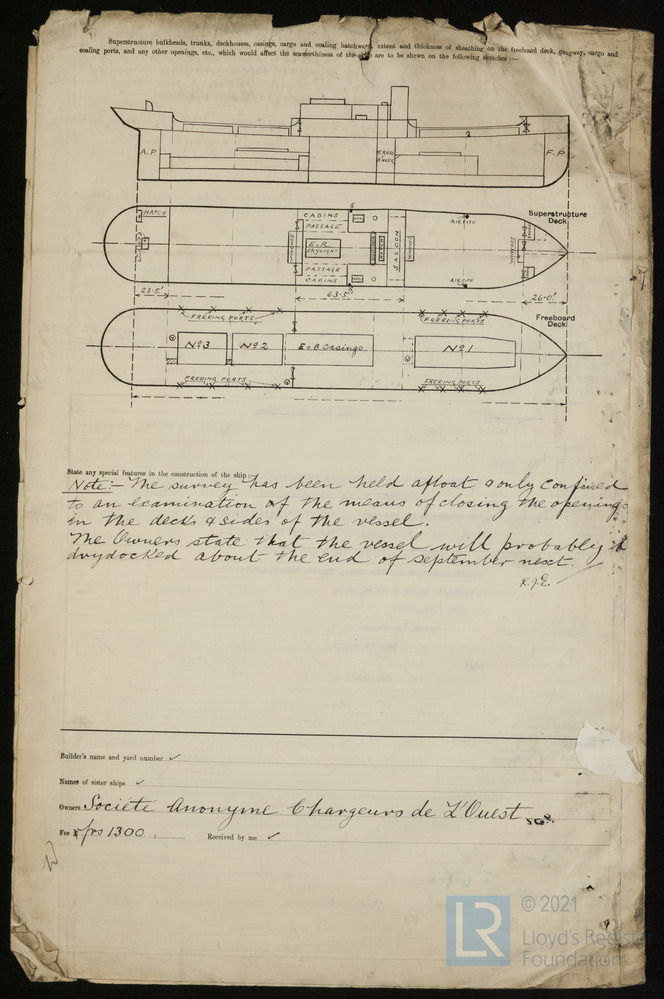 Superstructure bulkheads, trunks, deckhouses, casings, cargo and coaling hatchways, extent and thickness of sheathing on the freeboard deck, gangway, cargo and
coaling ports, and any other openings, etc., which would affect the seaworthiness of the ship are to be shown on the following sketches :—
A.P
CROSS
BUNKER
F.P
HATCH
CABINS
PASSAGE
E.R
SKYLIGHT
PASSAGE
CABINS
HATCH
SALOON
WINCHES
AIRPIPE
AIRPIPE
WINCHES
Superstructure
Deck
23·5'
63·5'
26·0'
Freeboard
Deck
FREEING PORTS
FREEING PORTS
Nº3
Nº2
E & B Casings
Nº1
FREEING PORTS
FREEING PORTS
State any special features in the construction of the ship :—
Note:— The survey has been held afloat & only confined
to an examination of the means of closing the openings
in the decks & sides of the vessel.
The Owners state that the vessel will probably b
drydocked about the end of September next.
R.J.E.
Builder's name and yard number ✓
Names of sister ships ✓
Owners Societé Anonyme Chargeurs de L'Ouest
Fee £ frs 1300 :
Received by me ✓
LR
© 2021
Lloyd's Register
Foundation